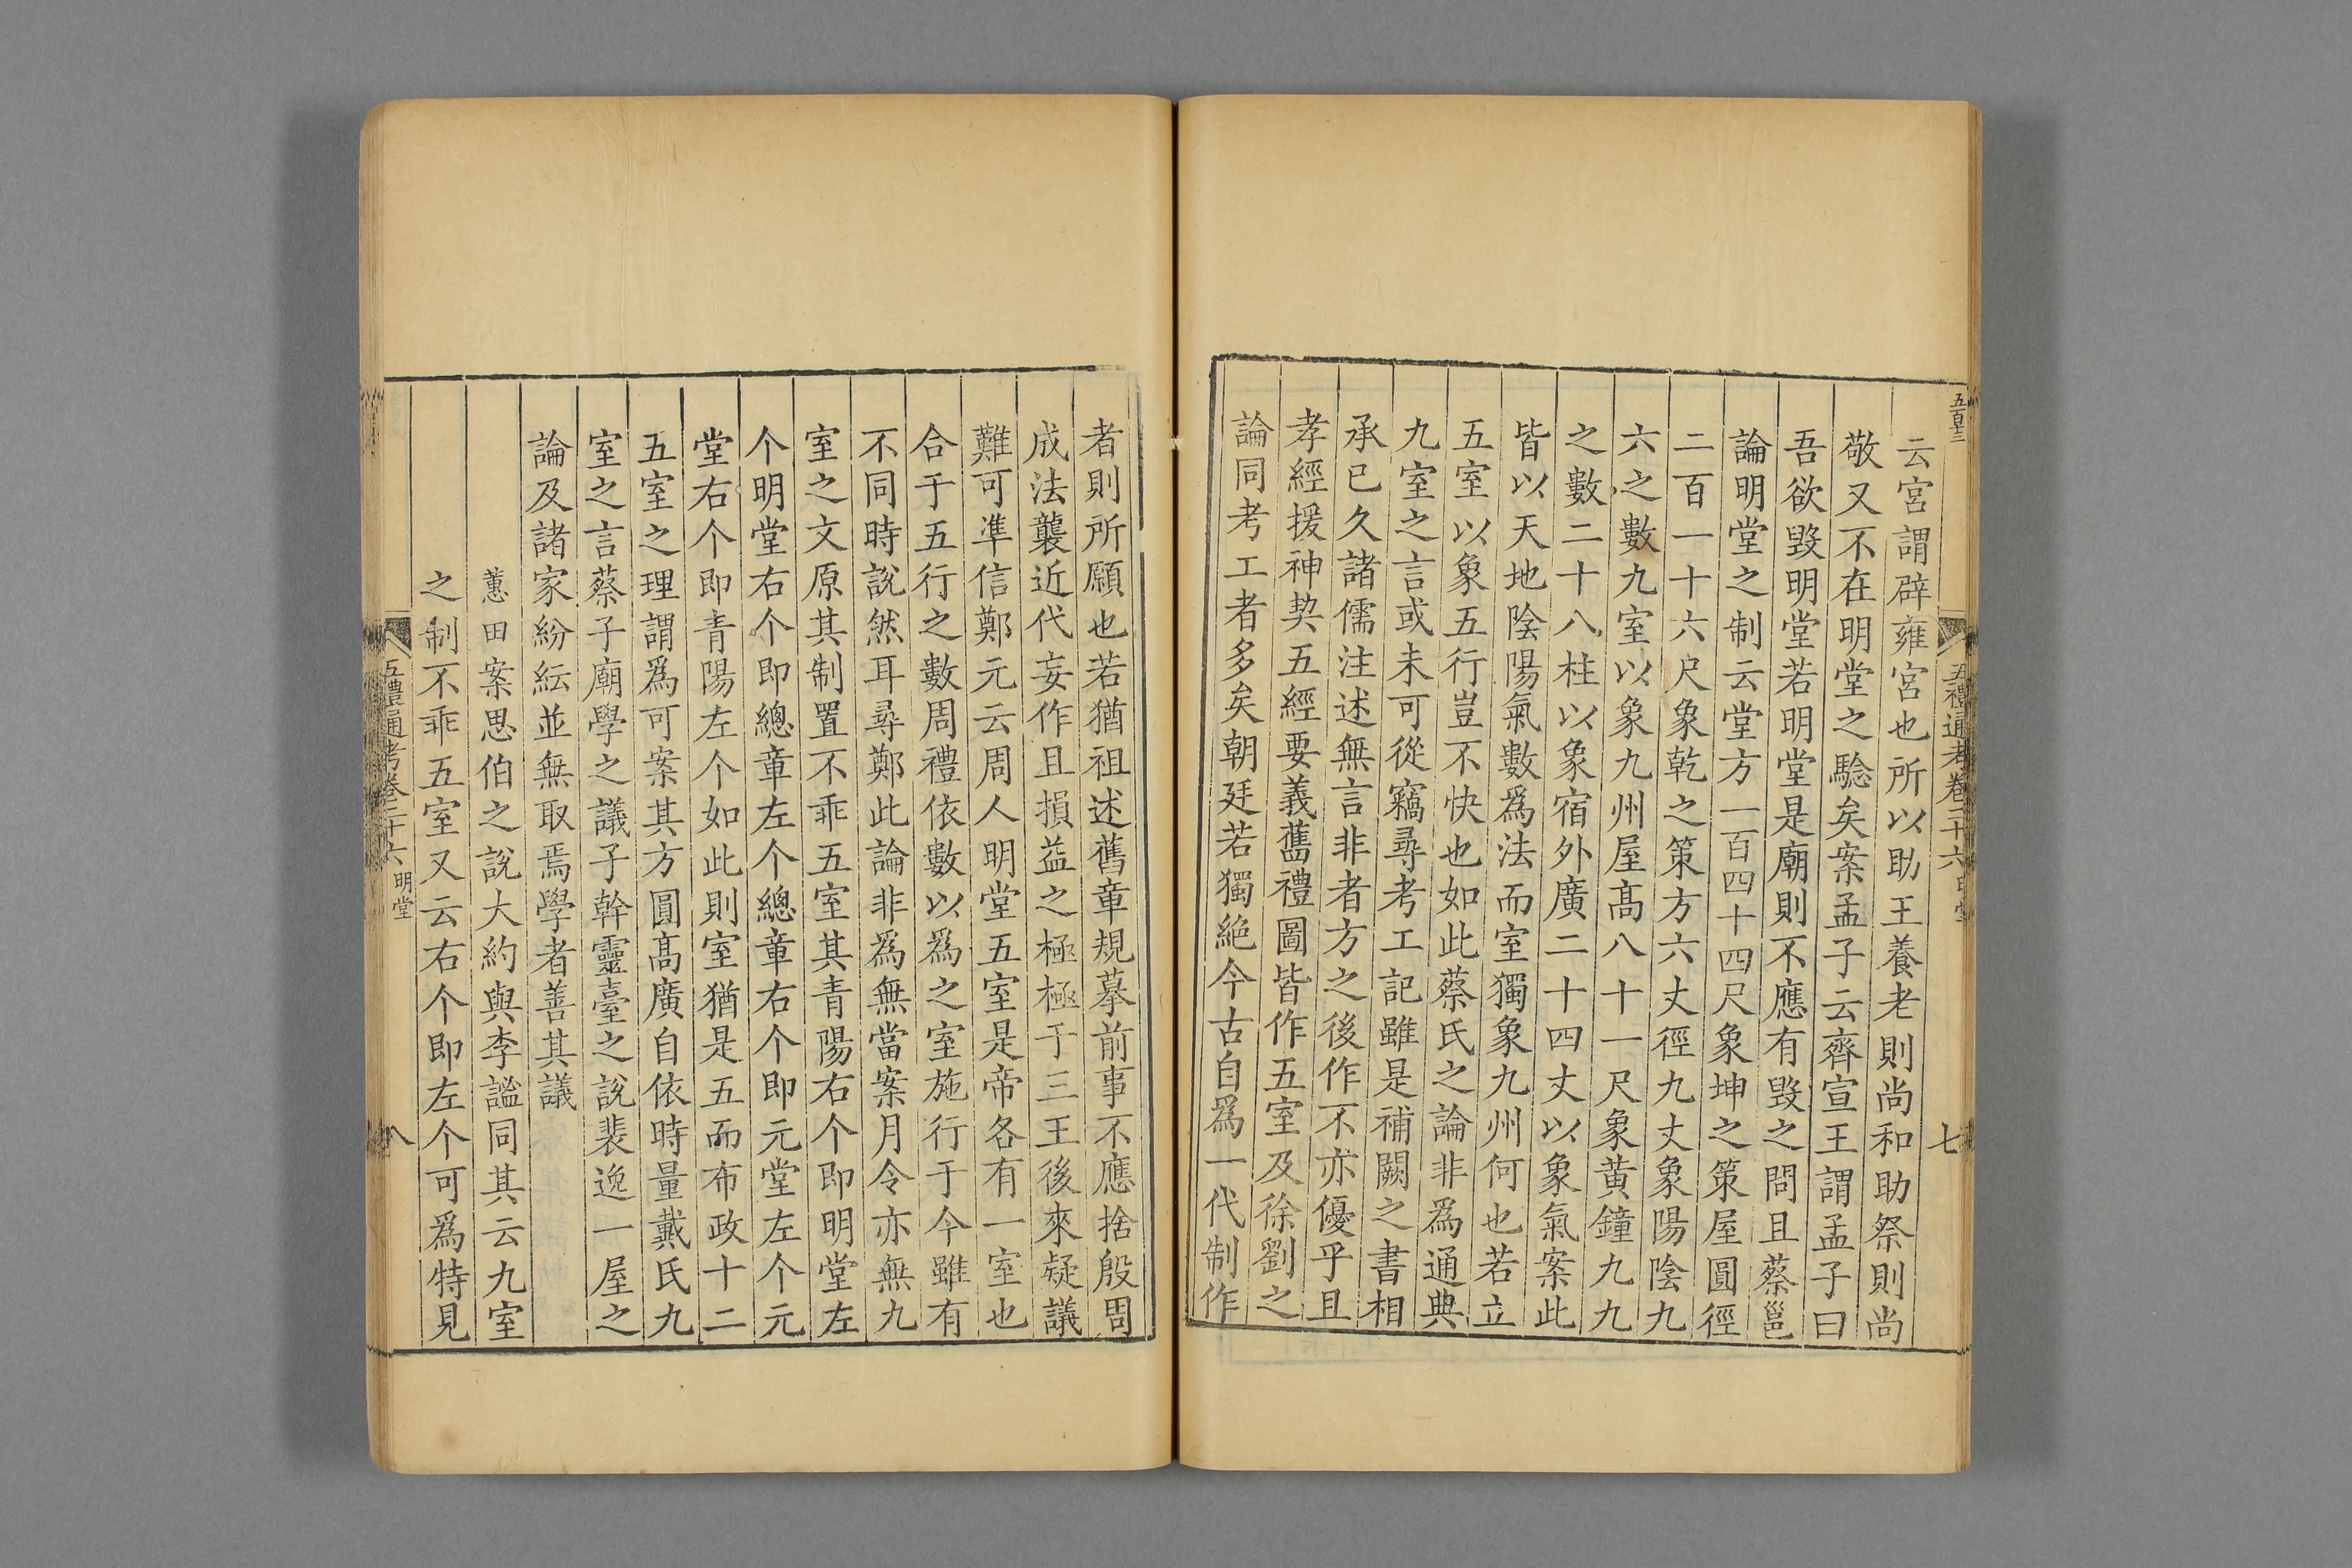 五百三
五禮通考卷二十六
七
云宮謂辟雍宮也所以助王養老則尚和助祭則尚
敬又不在明堂之驗矣案孟子云齊宣王謂孟子曰
吾欲毀明堂若明堂是廟則不應有毀之問且蔡邕
論明堂之制云堂方一百四十四尺象坤之策屋圓徑
二百一十六尺象乾之策方六丈徑九丈象陽陰九
六之數九室以象九州屋高八十一尺象黃鐘九九
之數二十八柱以象宿外廣二十四丈以象氣案此
皆以天地陰陽氣數爲法而室獨象九州何也若立
五室以象五行豈不快也如此蔡氏之論非爲通典
九室之言或未可從竊尋考工記雖是補闕之書相
承已久諸儒注述無言非者方之後作不亦優乎且
孝經援神契五經要義舊禮圖皆作五室及徐劉之
論同考工者多矣朝廷若獨絕今古自爲一代制作
者則所願也若猶祖述舊章規摹前事不應捨殷周
成法襲近代妄作且損益之極極于三王後來疑議
難可準信鄭元云周人明堂五室是帝各有一室也
合于五行之數周禮依數以爲之室施行于今雖有
不同時說然耳尋鄭此論非爲無當案月令亦無九
室之文原其制置不乖五室其青陽右个即明堂左
个明堂右个即總章左个總章右个即元堂左个元
堂右个即青陽左个如此則室猶是五而布政十二
五室之理謂爲可案其方圓高廣自依時量戴氏九
室之言蔡子廟學之議子幹靈臺之說裴逸一屋之
論及諸家紛紜並無取焉學者善其議
蕙田案思伯之說大約與李謐同其云九室
之制不乖五室又云右个即左个可爲特見
五禮通考卷二十六 明堂
八